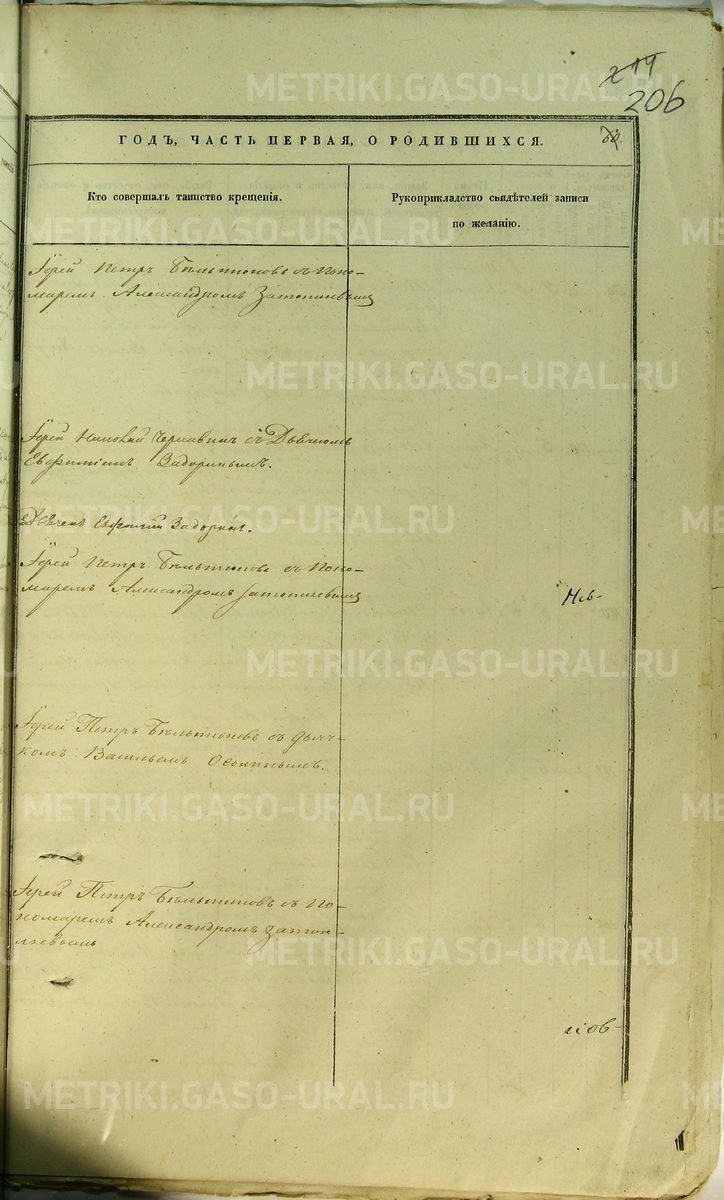 206
ГОДЪ, ЧАСТЬ ПЕРВАЯ, О РОДИВШИХСЯ.
Кто совершалъ таинство крещенія.
Рукоприкладство свидѣтелей записи
по желанію.
Іерей Петръ Бѣльтюковъ съ Поно-
маремъ Александромъ
Іерей Николай Чернавинъ съ Дьячкомъ
Евфиміемъ Задоринымъ.
Евфимій Задоринъ.
Іерей Петръ Бѣльтюковъ съ Поно-
маремъ Александромъ
Іерей Петръ Бѣльтюковъ съ дьяч-
комъ Васильемъ Осокинымъ.
Іерей Петръ Бѣльтюковъ съ По-
номаремъ Александромъ
METRIKI.GASO-URAL.RU